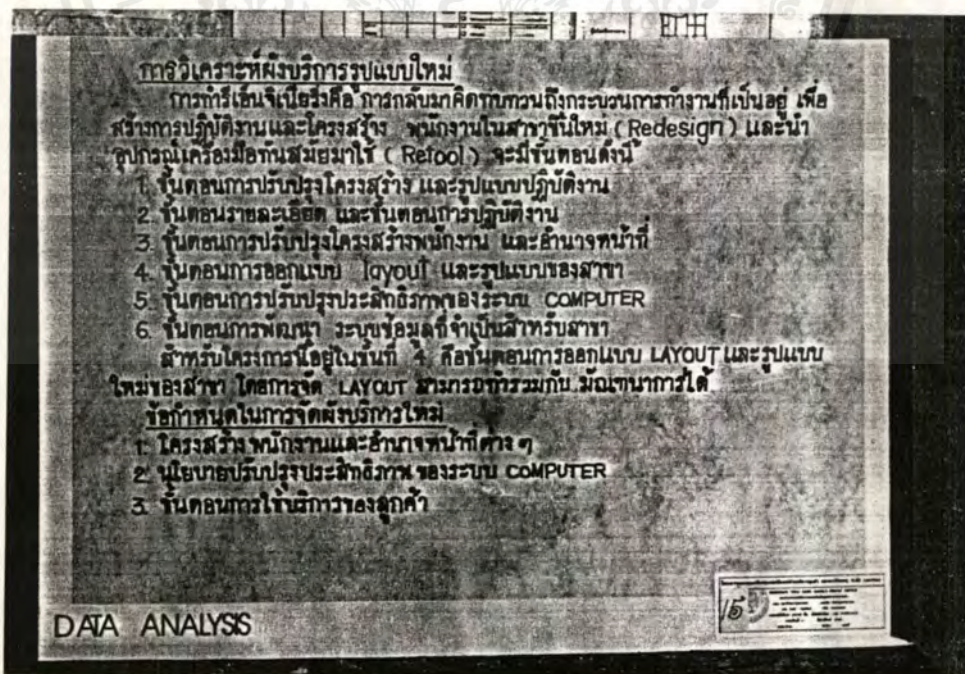 การวิเคราะห์ผังบริการรูปแบบใหม่
การทำรีเอ็นจิเนียริ่งคือ การกลับมาคิดทบทวนถึงกระบวนการทำงานที่เป็นอยู่ เพื่อ
สร้างการปฏิบัติงานและโครงสร้าง พนักงานในสาขาขึ้นใหม่ (Redesign) และนำ
อุปกรณ์เครื่องมือทันสมัยมาใช้ (Retool) จะมีขั้นตอนดังนี้
1. ขั้นตอนการปรับปรุงโครงสร้าง และรูปแบบปฏิบัติงาน
2. ขั้นตอนรายละเอียด และขั้นตอนการปฏิบัติงาน
3. ขั้นตอนการปรับปรุงโครงสร้างพนักงาน และอำนาจหน้าที่
4. ขั้นตอนการออกแบบ layout และรูปแบบของสาขา
5. ขั้นตอนการปรับปรุงประสิทธิภาพของระบบ COMPUTER
6. ขั้นตอนการพัฒนา ระบบข้อมูลที่จำเป็นสำหรับสาขา
สำหรับโครงการนี้อยู่ในขั้นที่ 4 คือขั้นตอนการออกแบบ LAYOUT และรูปแบบ
ใหม่ของสาขา โดยการจัด LAYOUT สามารถทำรวมกับ มัณฑนาการได้
ข้อกำหนดในการจัดผังบริการใหม่
1. โครงสร้างพนักงานและอำนาจหน้าที่ต่าง ๆ
2. นโยบายปรับปรุงประสิทธิภาพ ของระบบ COMPUTER
3. ขั้นตอนการใช้บริการของลูกค้า
15
DATA ANALYSIS